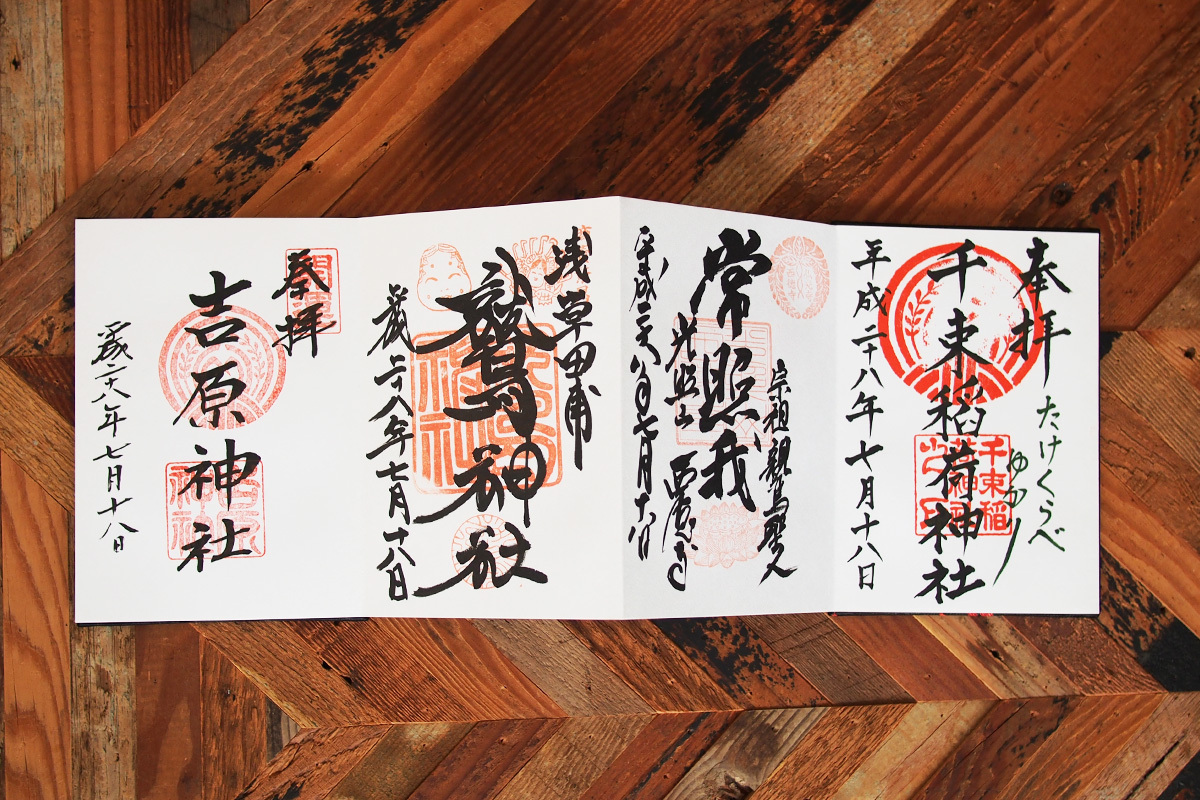 奉拝
たけくらべ
ゆかり
千束稲荷神社
千束稲
平成二十八年七月十八日
宗祖親鸞聖人
常照我
光照山
平成二十八年七月十八日
浅草田甫
鷲神社
平成二十八年七月十八日
奉拝
吉原神社
平成二十八年七月十八日